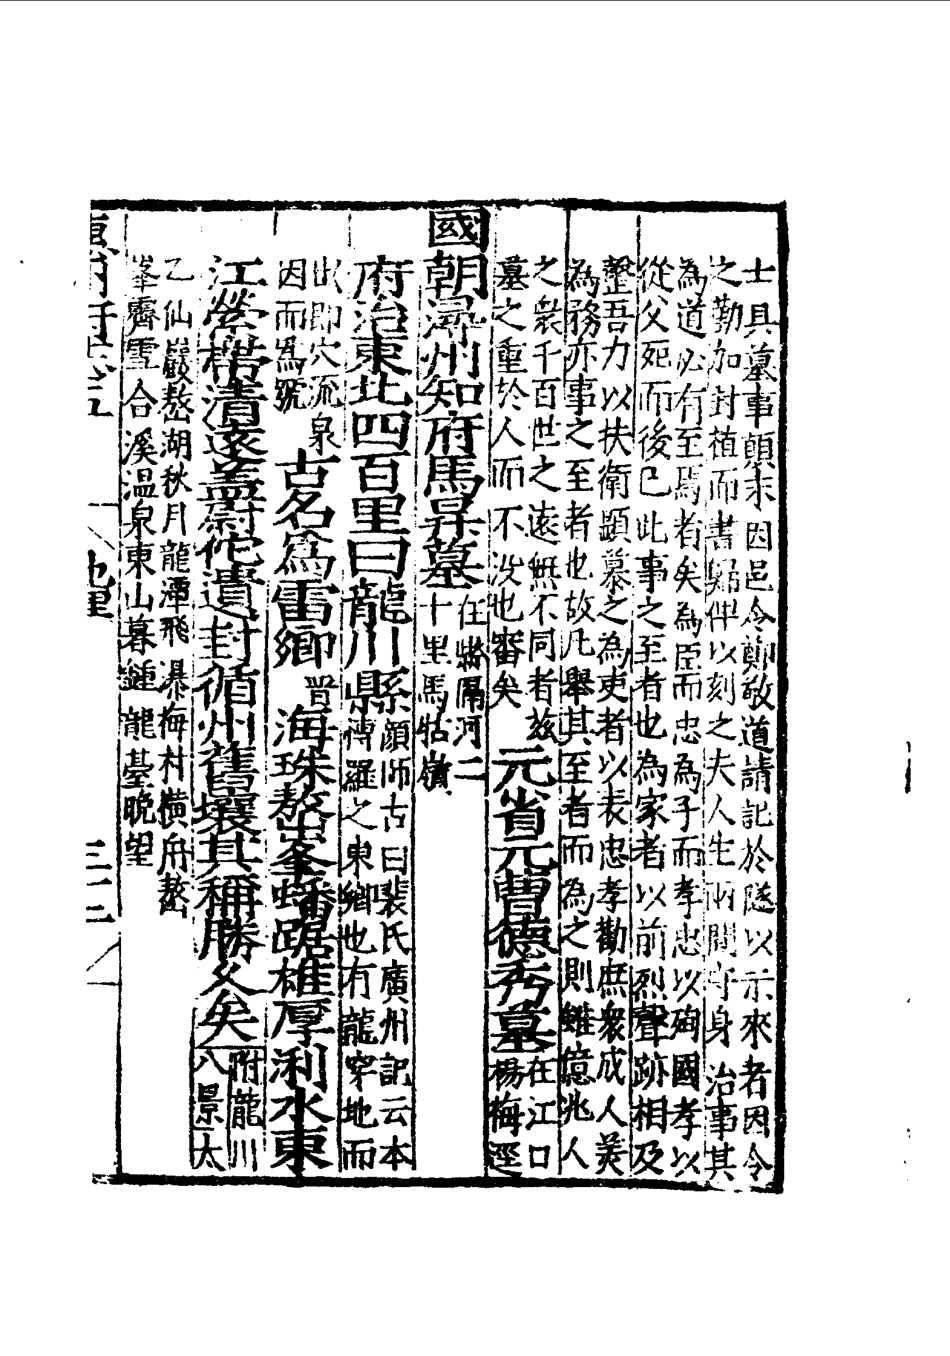 士具墓事顛末因邑令鄭敬道請記於隧以示來者因令
之勤加封植而書歸俾以刻之夫人生兩間守身治事其
為道必有至焉者矣為臣而忠為子而孝忠以殉國孝以
從父死而後已此事之至者也為家者以前烈聲跡相及
罄吾力以扶衛顯慕之為吏者以表忠孝勸庶衆成人美
為務亦事之至者也故凡舉其至者而為之則雖億兆人
之衆千百世之遠無不同者茲
墓之重於人而不沒也審矣
元省元曹德秀墓
在江口
楊梅逕
國朝潯州知府馬昇墓
在嶅隔河二
十里馬牯嶺
府治東北四百里曰龍川縣
顏師古曰裴氏廣州記云本
博羅之東鄉也有龍穿地而
出即穴流泉
因而為號
古名為雷鄉
首海珠嶅峯蟠踞雄厚利水東
江縈帶清遠蓋尉佗遺封循州舊壤其稱勝久矣
附龍川
八景太
乙仙巖嶅湖秋月龍潭飛瀑梅村橫舟嶅
峯霽雪合溪溫泉東山暮鍾龍臺晚望
惠州府志卷五
地理
三十二